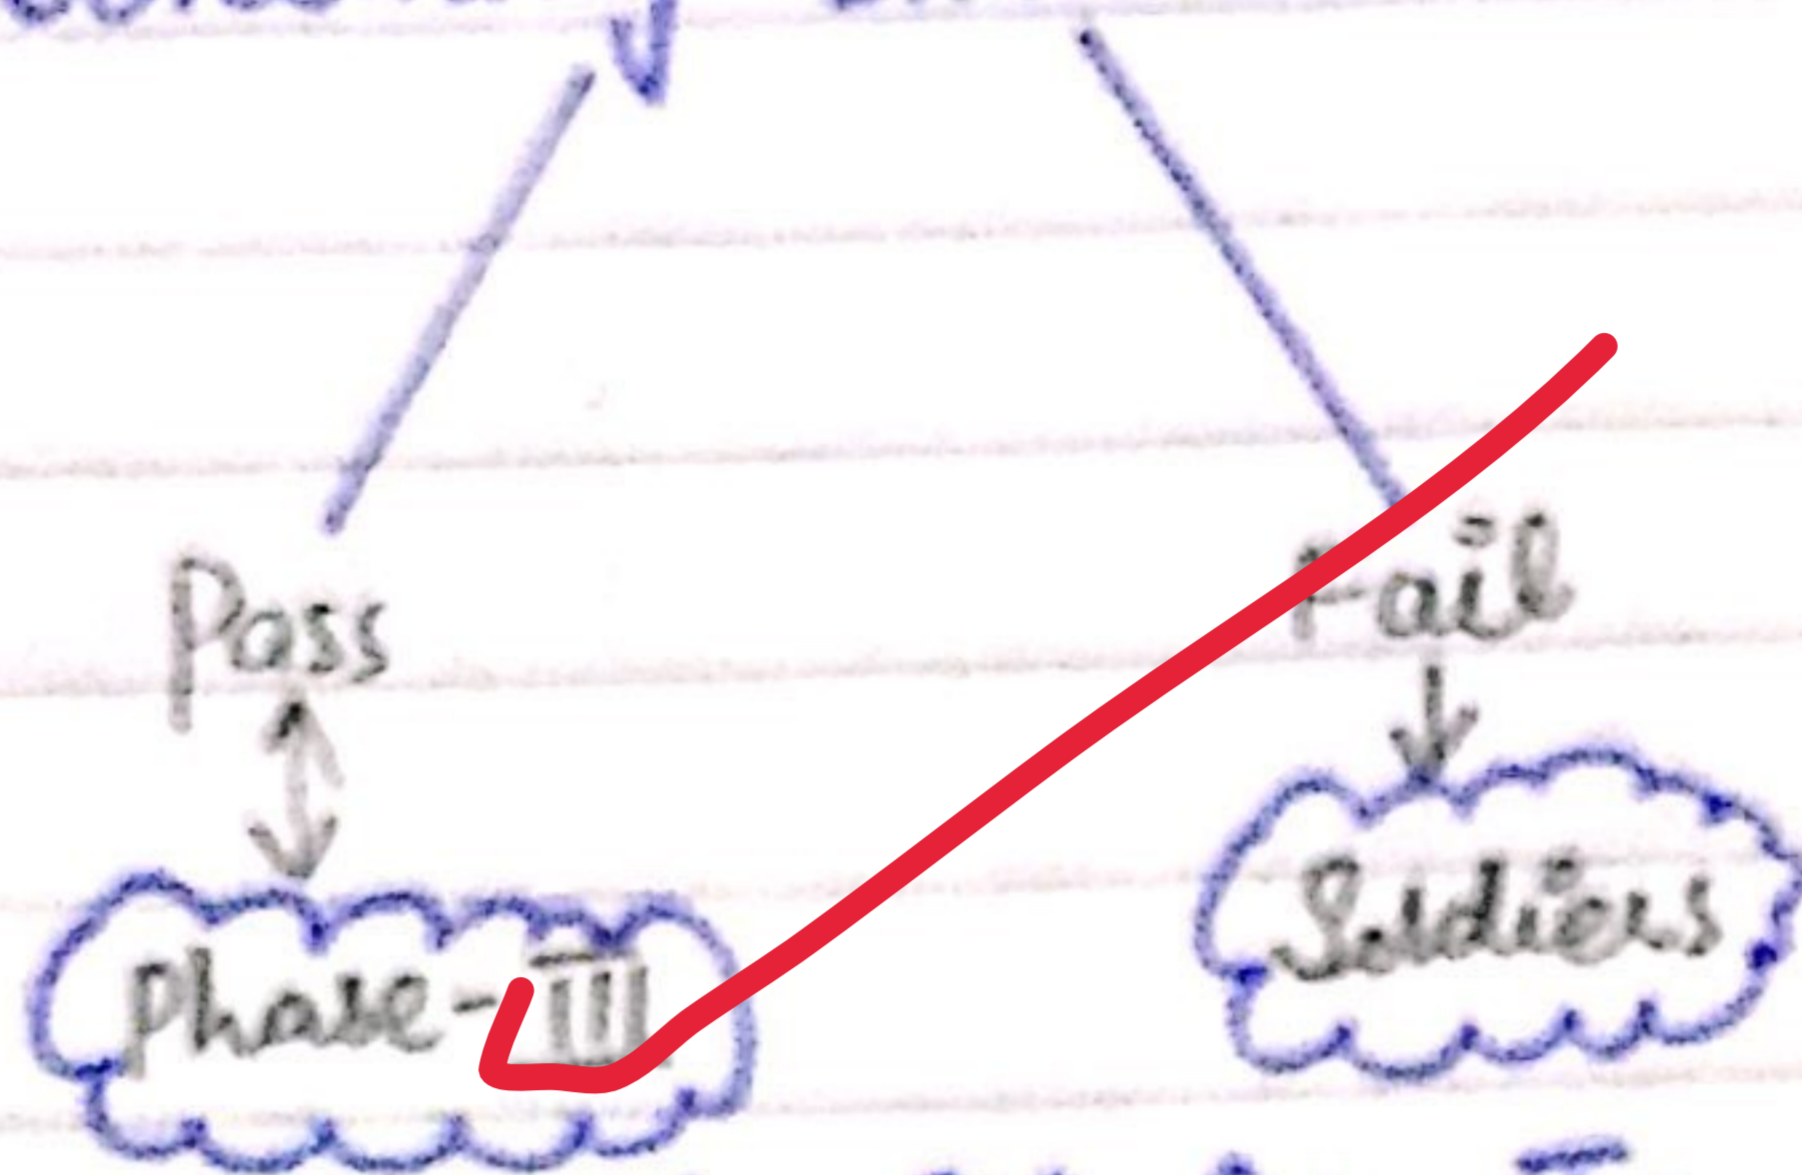 Pass
Fail
Phase-III
Soldiers